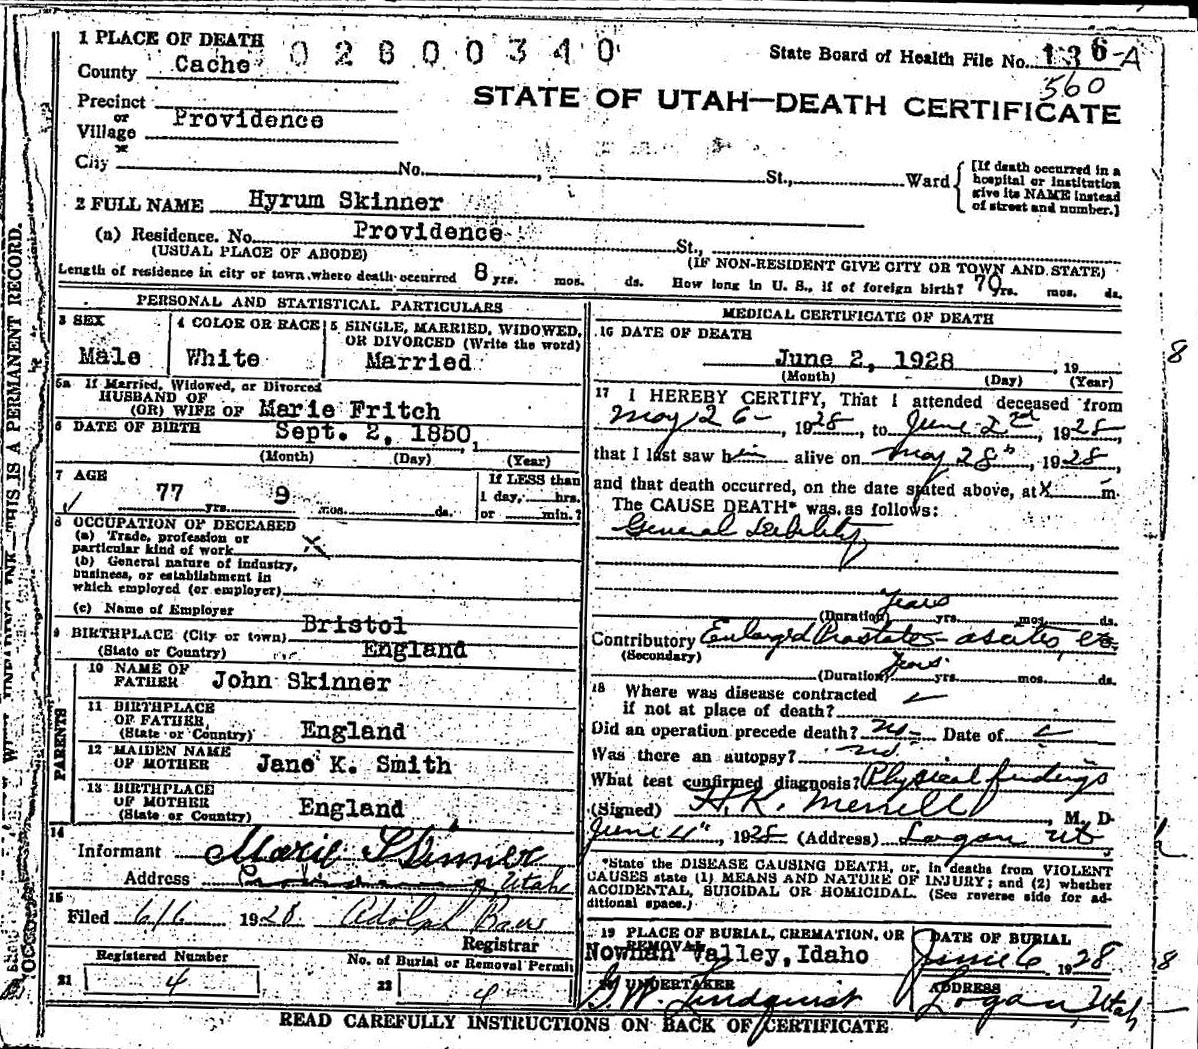 1 PLACE OF DEATH
02800340
State Board of Health File No. 136-A
County Cache
560
STATE OF UTAH—DEATH CERTIFICATE
Precinct
or
Village Providence
City No. , St., Ward
[If death occurred in a
hospital or institution
give its NAME instead
of street and number.]
2 FULL NAME Hyrum Skinner
(a) Residence. No. Providence St.,
(USUAL PLACE OF ABODE) (IF NON-RESIDENT GIVE CITY OR TOWN AND STATE)
Length of residence in city or town where death occurred 8 yrs. mos. ds. How long in U. S., if of foreign birth? 70 yrs. mos. ds.
PERSONAL AND STATISTICAL PARTICULARS
3 SEX
Male
4 COLOR OR RACE
White
5 SINGLE, MARRIED, WIDOWED,
OR DIVORCED (Write the word)
Married
5a If Married, Widowed, or Divorced
HUSBAND OF
(OR) WIFE OF Marie Fritch
6 DATE OF BIRTH Sept. 2, 1850,
(Month) (Day) (Year)
7 AGE
77 yrs. 9 mos. ds.
If LESS than
1 day, hrs.
or min.?
8 OCCUPATION OF DECEASED
(a) Trade, profession or
particular kind of work X
(b) General nature of industry,
business, or establishment in
which employed (or employer)
(c) Name of Employer
9 BIRTHPLACE (City or town) Bristol
(State or Country) England
PARENTS
10 NAME OF
FATHER John Skinner
11 BIRTHPLACE
OF FATHER,
(State or Country) England
12 MAIDEN NAME
OF MOTHER Jane K. Smith
13 BIRTHPLACE
OF MOTHER
(State or Country) England
14
Informant Marie Skinner
Address Utah
15
Filed 6/6 1928 Adolph Baer
Registrar
Registered Number
21 4
No. of Burial or Removal Permit
22 4
MEDICAL CERTIFICATE OF DEATH
16 DATE OF DEATH
June 2, 1928 , 19
(Month) (Day) (Year)
17 I HEREBY CERTIFY, That I attended deceased from
May 26- , 1928, to June 2nd, 1928,
that I last saw him alive on May 28th, 1928,
and that death occurred, on the date stated above, at X m.
The CAUSE DEATH* was as follows:
General Debility
(Duration) Years yrs. mos. ds.
Contributory Enlarged Prostate - ascites, etc.
(Secondary)
(Duration) Years yrs. mos. ds.
18 Where was disease contracted
if not at place of death?
Did an operation precede death? no Date of
Was there an autopsy? no.
What test confirmed diagnosis? Physical findings
(Signed) H.K. Merrill , M. D.
June 4th, 1928 (Address) Logan Ut
*State the DISEASE CAUSING DEATH, or, in deaths from VIOLENT
CAUSES state (1) MEANS AND NATURE OF INJURY; and (2) whether
ACCIDENTAL, SUICIDAL OR HOMICIDAL. (See reverse side for ad-
ditional space.)
19 PLACE OF BURIAL, CREMATION, OR
REMOVAL
Nownan Valley, Idaho
DATE OF BURIAL
June 6, 1928
20 UNDERTAKER
G.W. Lindquist
ADDRESS
Logan, Utah
READ CAREFULLY INSTRUCTIONS ON BACK OF CERTIFICATE
THIS IS A PERMANENT RECORD.
8
8